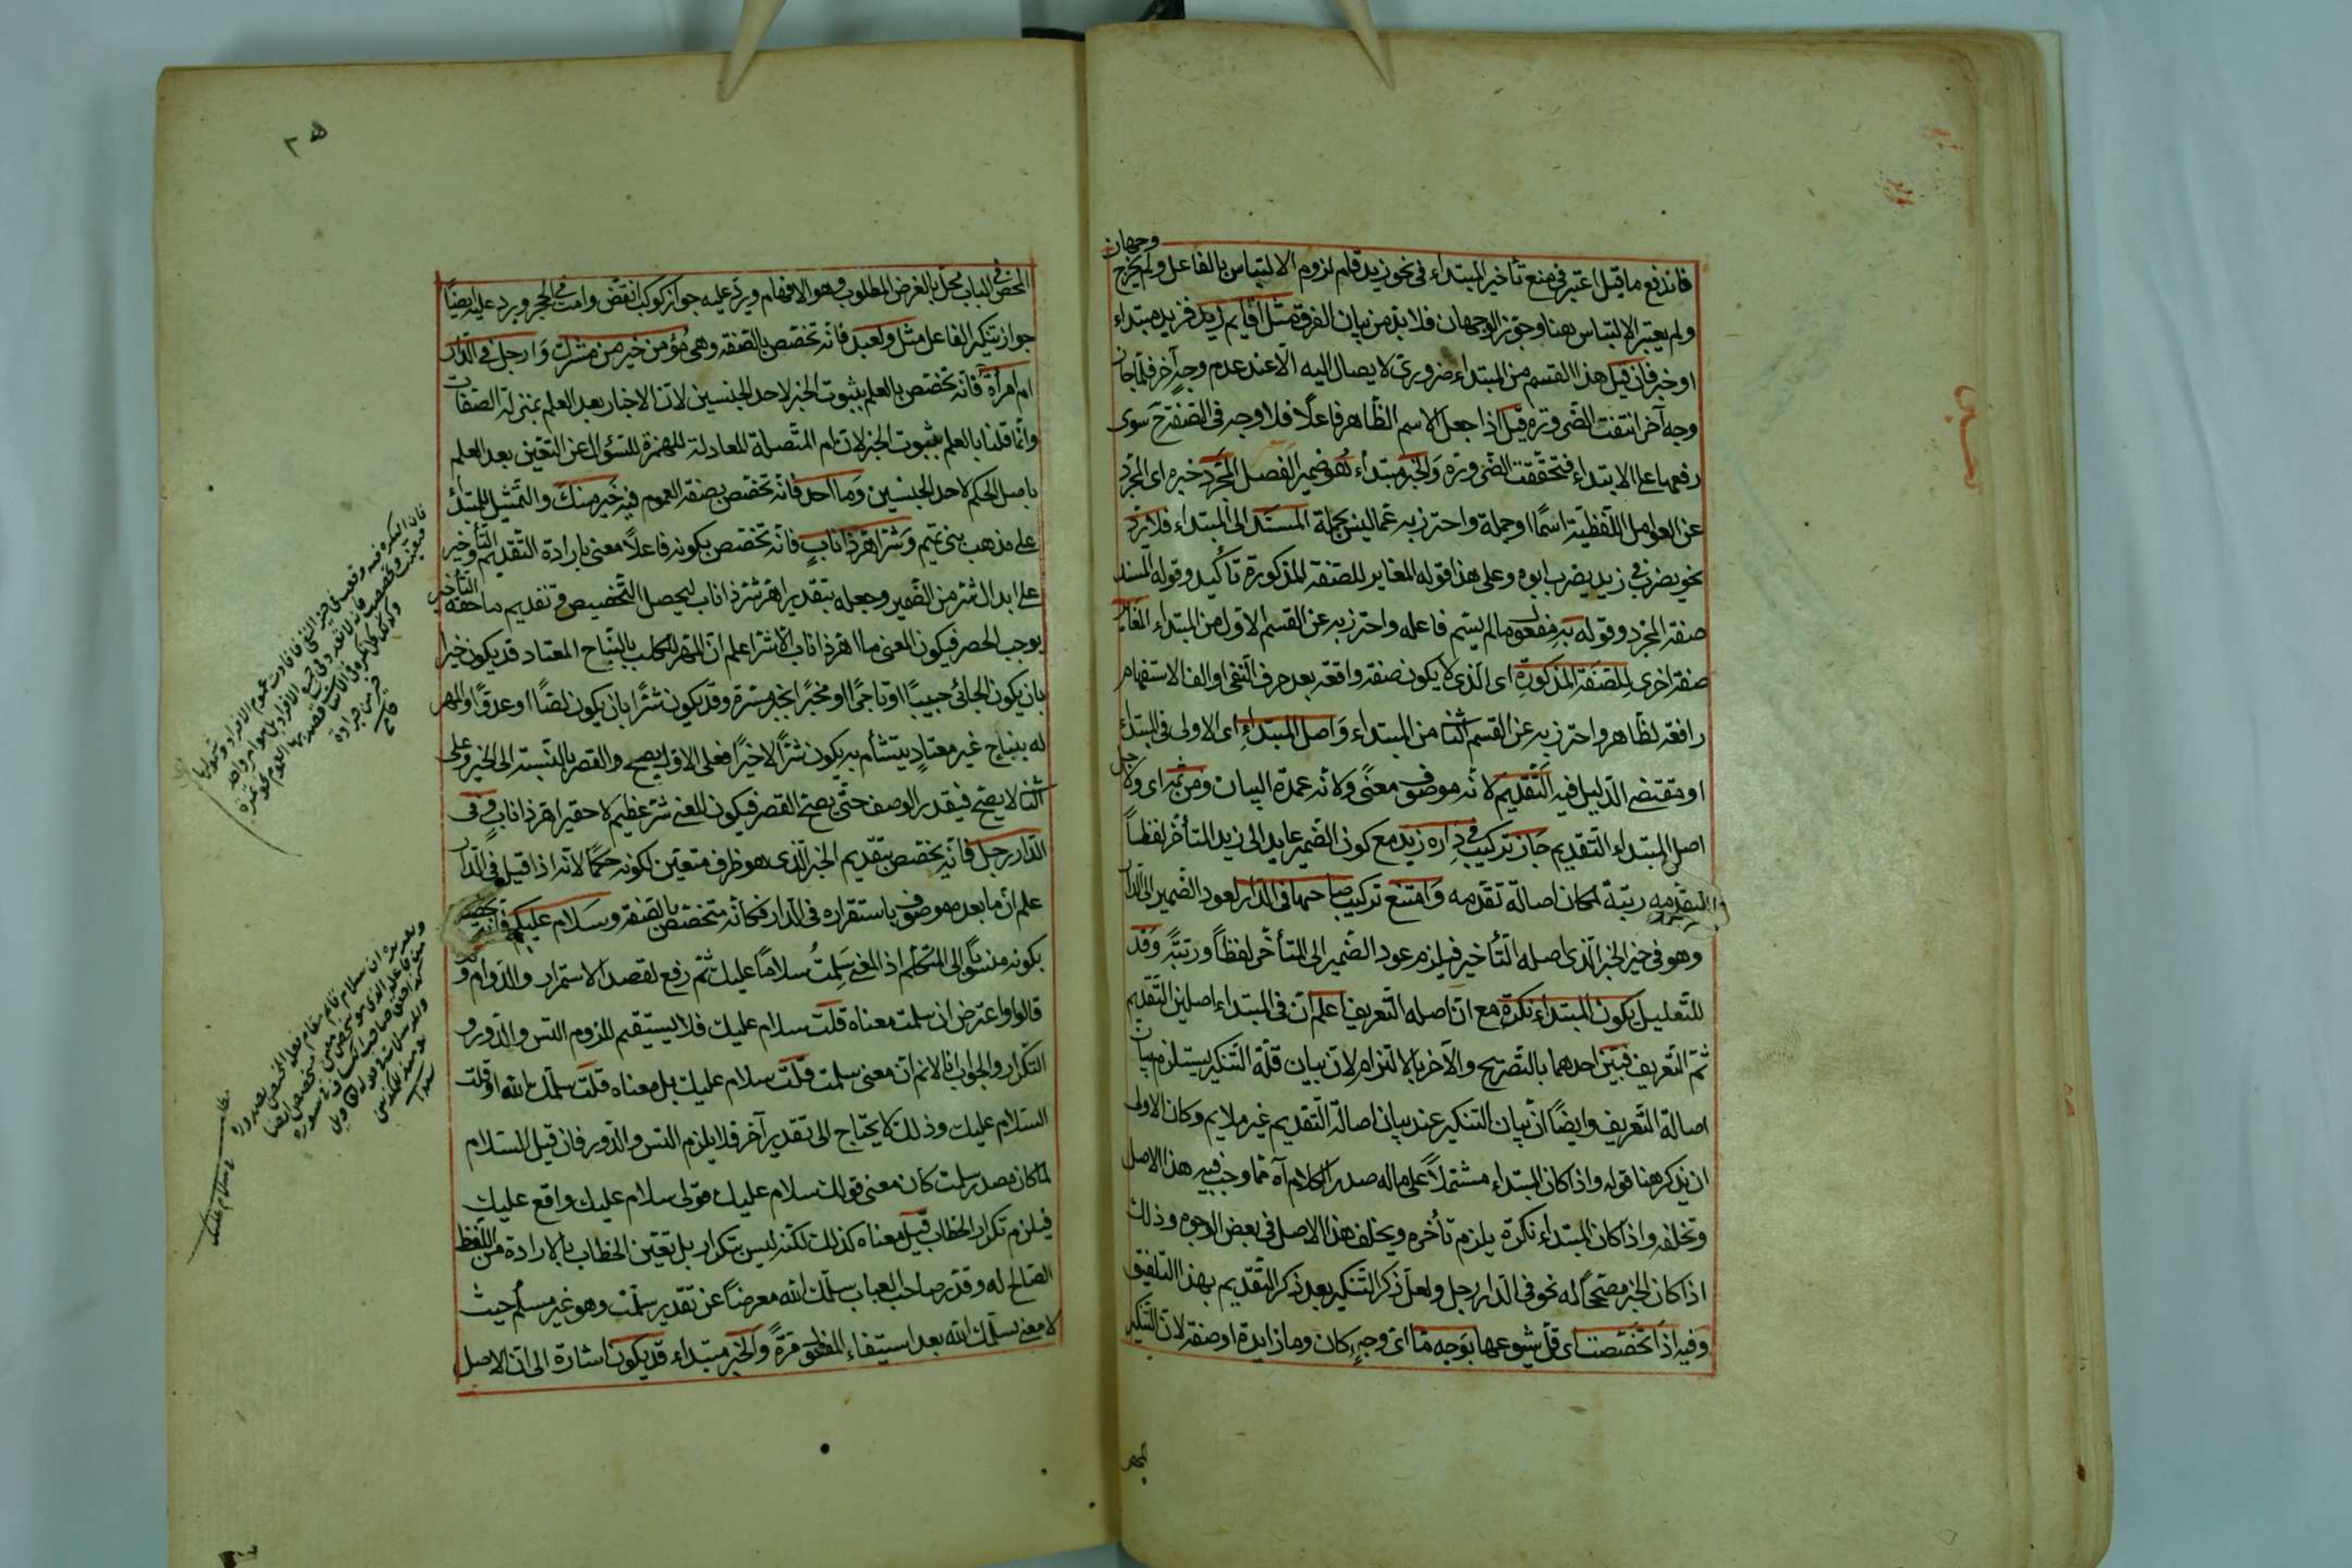 وجهان
فاندفع ما قيل اعتبر في منع تأخير المبتداء في نحو زيد قام لزوم الالتباس بالفاعل ولم يخرج
ولم يعتبر الالتباس هنا وجوز الوجهان فلا بد من بيان الفرق مثل اقايم زيد فزيد مبتداء
او خبر فان قيل هذا القسم من المبتداء ضروري لا يصال اليه الا عند عدم وجه آخر فلما جان
وجه آخر انتفت الضرورة قيل اذا جعل الاسم الظاهر فاعلا فلا وجه في الصفة ح سوى
رفعها على الابتداء فتحققت الضرورة والخبر مبتداء هو ضمير الفصل المجرد خبره اى المجرد
عن العوامل اللفظية اسما او جملة واحترز به عما ليس بجملة المسند الى المبتداء فلا يرد
نحو يضرب في زيد يضرب ابوه وعلى هذا قوله المغاير للصفة المذكورة تأكيد وقوله المسند
صفة المجرد وقوله به مفعول ما لم يسم فاعله واحترز به عن القسم الاول من المبتداء المغاير
صفة اخرى للصفة المذكورة اى الذى لا يكون صفة واقعة بعد حرف النفى او الف الاستفهام
رافعة لظاهر واحترز به عن القسم الثنا من المبتداء واصل المبتداء اى الاولى في المبتدأ
او مقتضى الدليل فيه التقديم لانه موصوف معنى ولانه عمدة البيان ومن ثمه اى ولاجل
اصل المبتداء التقديم جاز تركيب في داره زيد مع كون الضمير عايد الى زيد المتأخر لفظا
لتقدمه رتبة لمكان اصالة تقدمه وامتنع تركيب صاحبها في الدار لعود الضمير الى الدار
وهو في حيز الخبر الذى اصله التأخير فيلزم عود الضمير الى المتأخر لفظا ورتبة وقد
للتعليل يكون المبتداء نكرة مع ان اصله التعريف اعلم ان في المبتداء اصلين التقديم
ثم التعريف فبين احدهما بالتصريح والآخر بالالتزام لان بيان قلة التنكير يستلزم بيان
اصالة التعريف وايضا ان بيان التنكير عند بيان اصالة التقديم غير ملايم وكان الاولى
ان يذكر هنا قوله واذا كان المبتداء مشتملا على ماله صدر الكلام آه مما وجب فيه هذا الاصل
وتخلفه واذا كان المبتداء نكرة يلزم تأخره ويخلف هذا الاصل في بعض الوجوه وذلك
اذا كان الخبر مصححا له نحو في الدار رجل ولعل ذكر التنكير بعد ذكر التقديم بهذا التلفيق
وفيه اذا تخصصت اى قل شيوعها بوجه ما اى وجه كان وما زايدة او صفة لان التنكير
المحض
المحض في الباب مخل بالغرض المطلوب وهو الافهام ويرد عليه جواز كوكب انقض وامت في الحجر ويرد عليه ايضا
جواز تنكير الفاعل مثل ولعبد فانه تخصص بالصفة وهى مؤمن خير من مشرك وارجل في الدار
ام امرأة فانه تخصص بالعلم بثبوت الخبر لاحد الجنسين لان الاخبار بعد العلم بمنزلة الصفات
وانما قلنا بالعلم بثبوت الخبر لان ام المتصلة المعادلة للهمزة للسؤال عن التعين بعد العلم
باصل الحكم لاحد الجنسين وما احد فانه تخصص بصفة العموم فيه خير منك والتمثيل للمبتدأ
على مذهب بنى تميم وشر اهر ذا ناب فانه تخصص بكونه فاعلا معنى بارادة التقديم والتأخير
على ابدال شر من الضمير وجعله بتقدير اهر شر ذا ناب ليحصل التخصيص في تقديم ما حقه التأخير
يوجب الحصر فيكون المعنى ما اهر ذا ناب الا شر اعلم ان المهر للكلب بالنباح المعتاد قد يكون خيرا
بان يكون الجائى حبيبا او تاجرا او مخبرا بخبر مسرة وقد يكون شرا بان يكون لصا او عدوا والمهر
له بنباح غير معتاد يتشأم به يكون شرا لا خيرا فعلى الاول يصح والقصر بالنسبة الى الخير وعلى
الثنا لا يصح فيقدر الوصف حتى يصح القصر فيكون المعنى شر عظيم لا حقير اهر ذا ناب وفى
الدار رجل فانه يخصص بتقديم الخبر الذى هو ظرف متعين لكونه حكما لانه اذا قيل في الدار
علم ان ما بعده موصوف باستقراره في الدار فكانه متخصص بالصفة وسلام عليك فانه
بكونه منسوبا الى المتكلم اذ المعنى سلمت سلاما عليك ثم رفع لقصد الاستمرار والدوام و
قالوا واعترض ان سلمت معناه قلت سلام عليك فلا يستقيم للزوم التس والدور و
التكرار والجواب انا لانم ان معنى سلمت قلت سلام عليك بل معناه قلت سلمك الله او قلت
السلام عليك وذلك لا يحتاج الى تقدير آخر فلا يلزم التس والدور فان قيل السلام
لما كان مصدر سلمت كان معنى قولك سلام عليك قولى سلام عليك واقع عليك
فيلزم تكرار الخطاب قيل معناه كذلك لكنه ليس بتكرار بل تعين الخطاب بالارادة من اللفظ
الصالح له وقدر صاحب العباب سلمك الله معرضا عن تقدير سلمت وهو غير مسلم حيث
لا معنى لسلمك الله بعد استيفاء المنطوق مرة والخبر مبتداء قد يكون اشارة الى ان الاصل